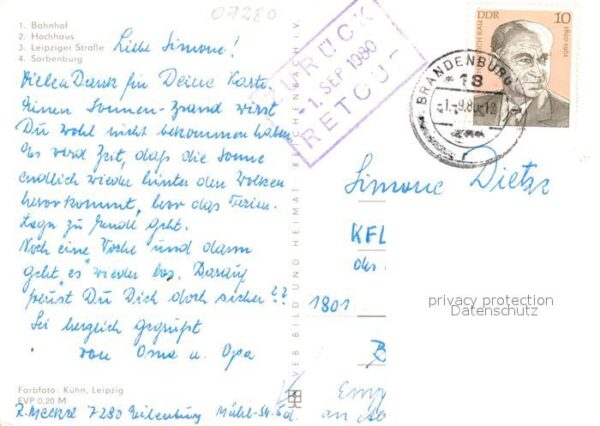 07280
1. Bahnhof
2. Hochhaus
3. Leipziger Straße
4. Sorbenburg
Liebe Simone!
Vielen Dank für Deine Karte.
Einen Sonnen-Brand wirst
Du wohl nicht bekommen haben
Es wird Zeit, daß die Sonne
endlich wieder hinter den Wolken
hervorkommt, bevor das Ferien.
Lager zu Ende geht.
Noch eine Woche und dann
geht es wieder los. Darauf
freust Du Dich doch sicher??
Sei herzlich gegrüßt
von Oma u. Opa
Farbfoto: Kühn, Leipzig
EVP 0,20 M
7280 Eilenburg
VEB BILD UND HEIMAT REICHENBACH I. V.
ZURÜCK
-1. SEP 1980
RETOUR
DDR
10
BRANDENBURG
18
-1.-9.80-12
Simone
KFL
des
1801
B
privacy protection
Datenschutz